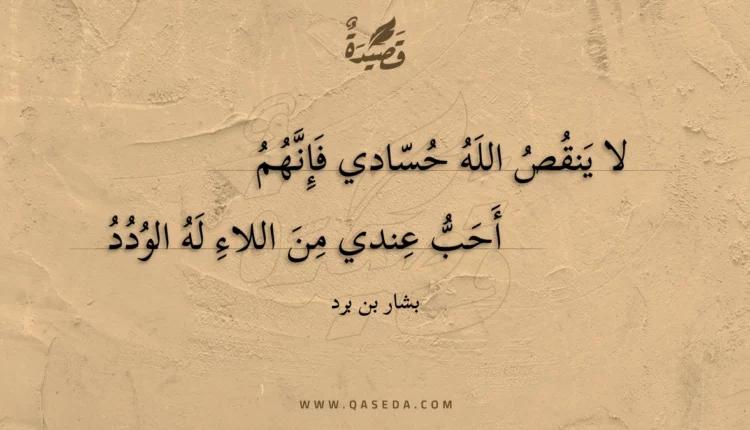 قَصِيْدَةٌ
لا يَنقُصُ اللَهُ حُسّادي فَإِنَّهُمُ
أَحَبُّ عِندي مِنَ اللاءِ لَهُ الوُدُدُ
بشار بن برد
WWW.QASEDA.COM